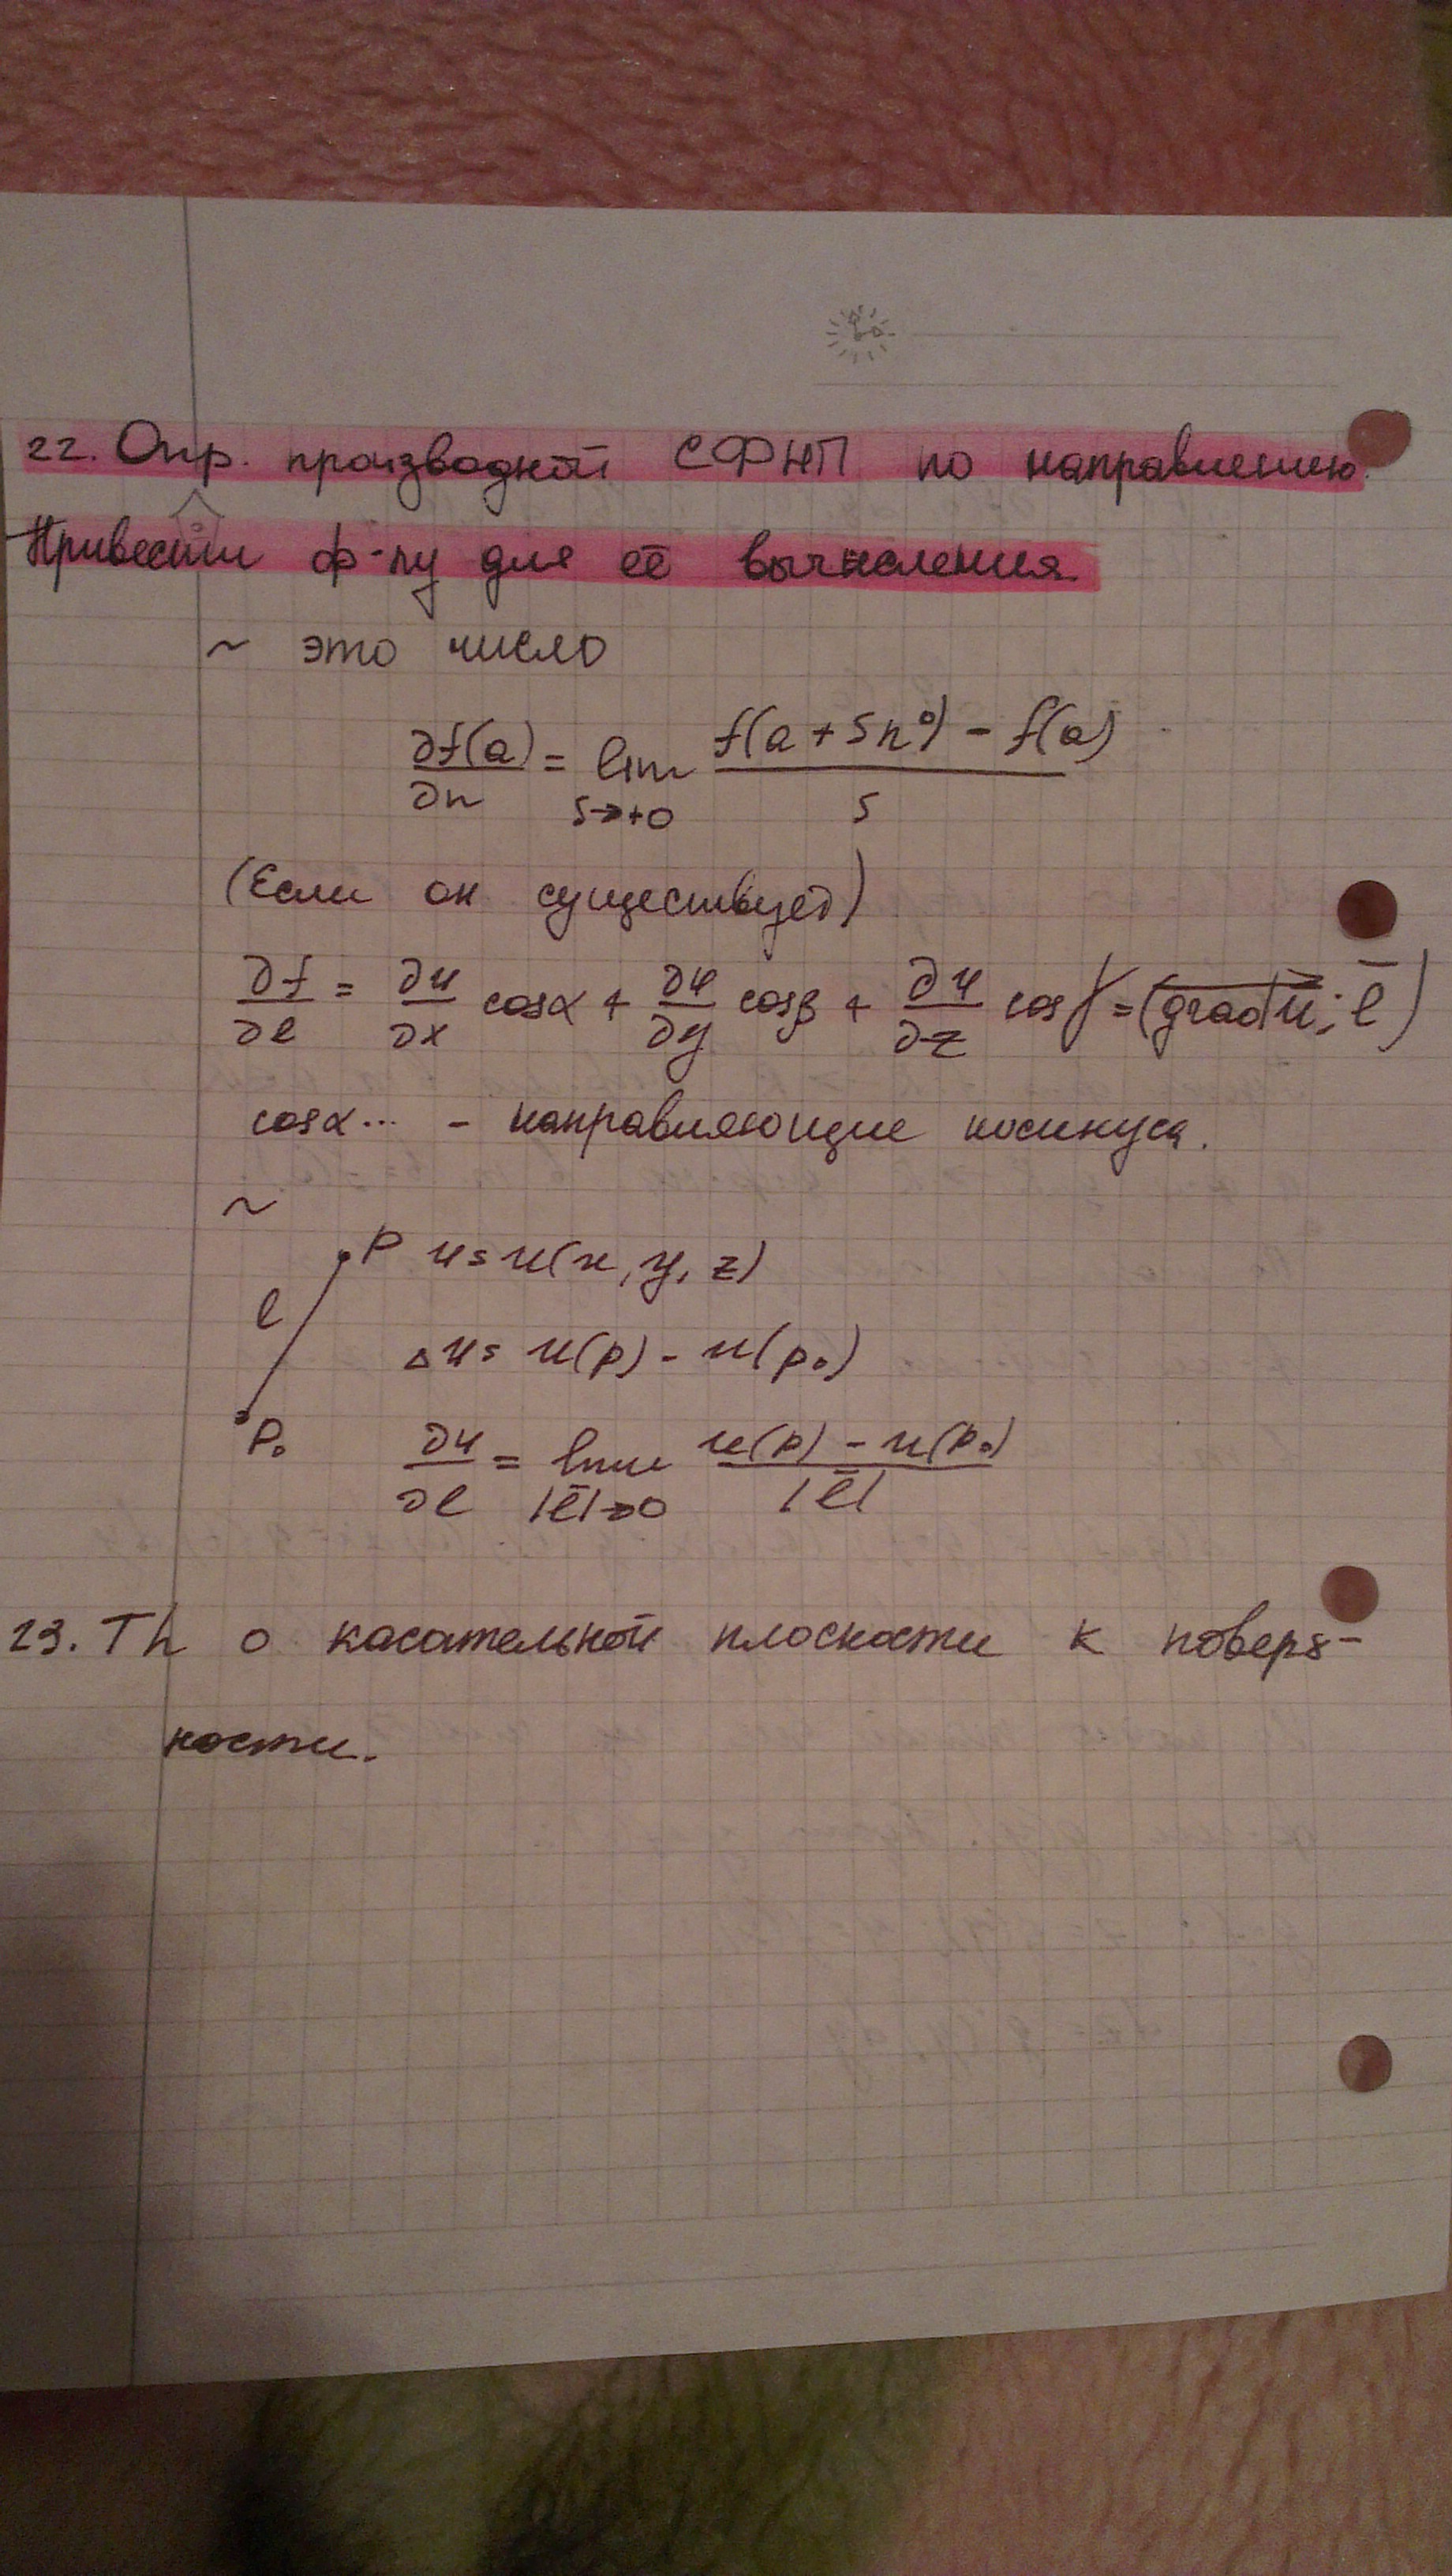 22. Опр. производной СФНП по направлению.
Привести ф-лу для её вычисления.
~ это число
∂f(a)/∂n = lim s→+0 (f(a + sn⁰) - f(a))/s
(Если он существует)
∂f/∂l = ∂u/∂x cosα + ∂u/∂y cosβ + ∂u/∂z cosγ = (grad u; l̄)
cosα... - направляющие косинуса.
~
P u = u(x, y, z)
l
Δu = u(p) - u(p₀)
P₀
∂u/∂l = lim |l̄|→0 (u(p) - u(p₀))/|l̄|
23. Th о касательной плоскости к поверх-
ности.